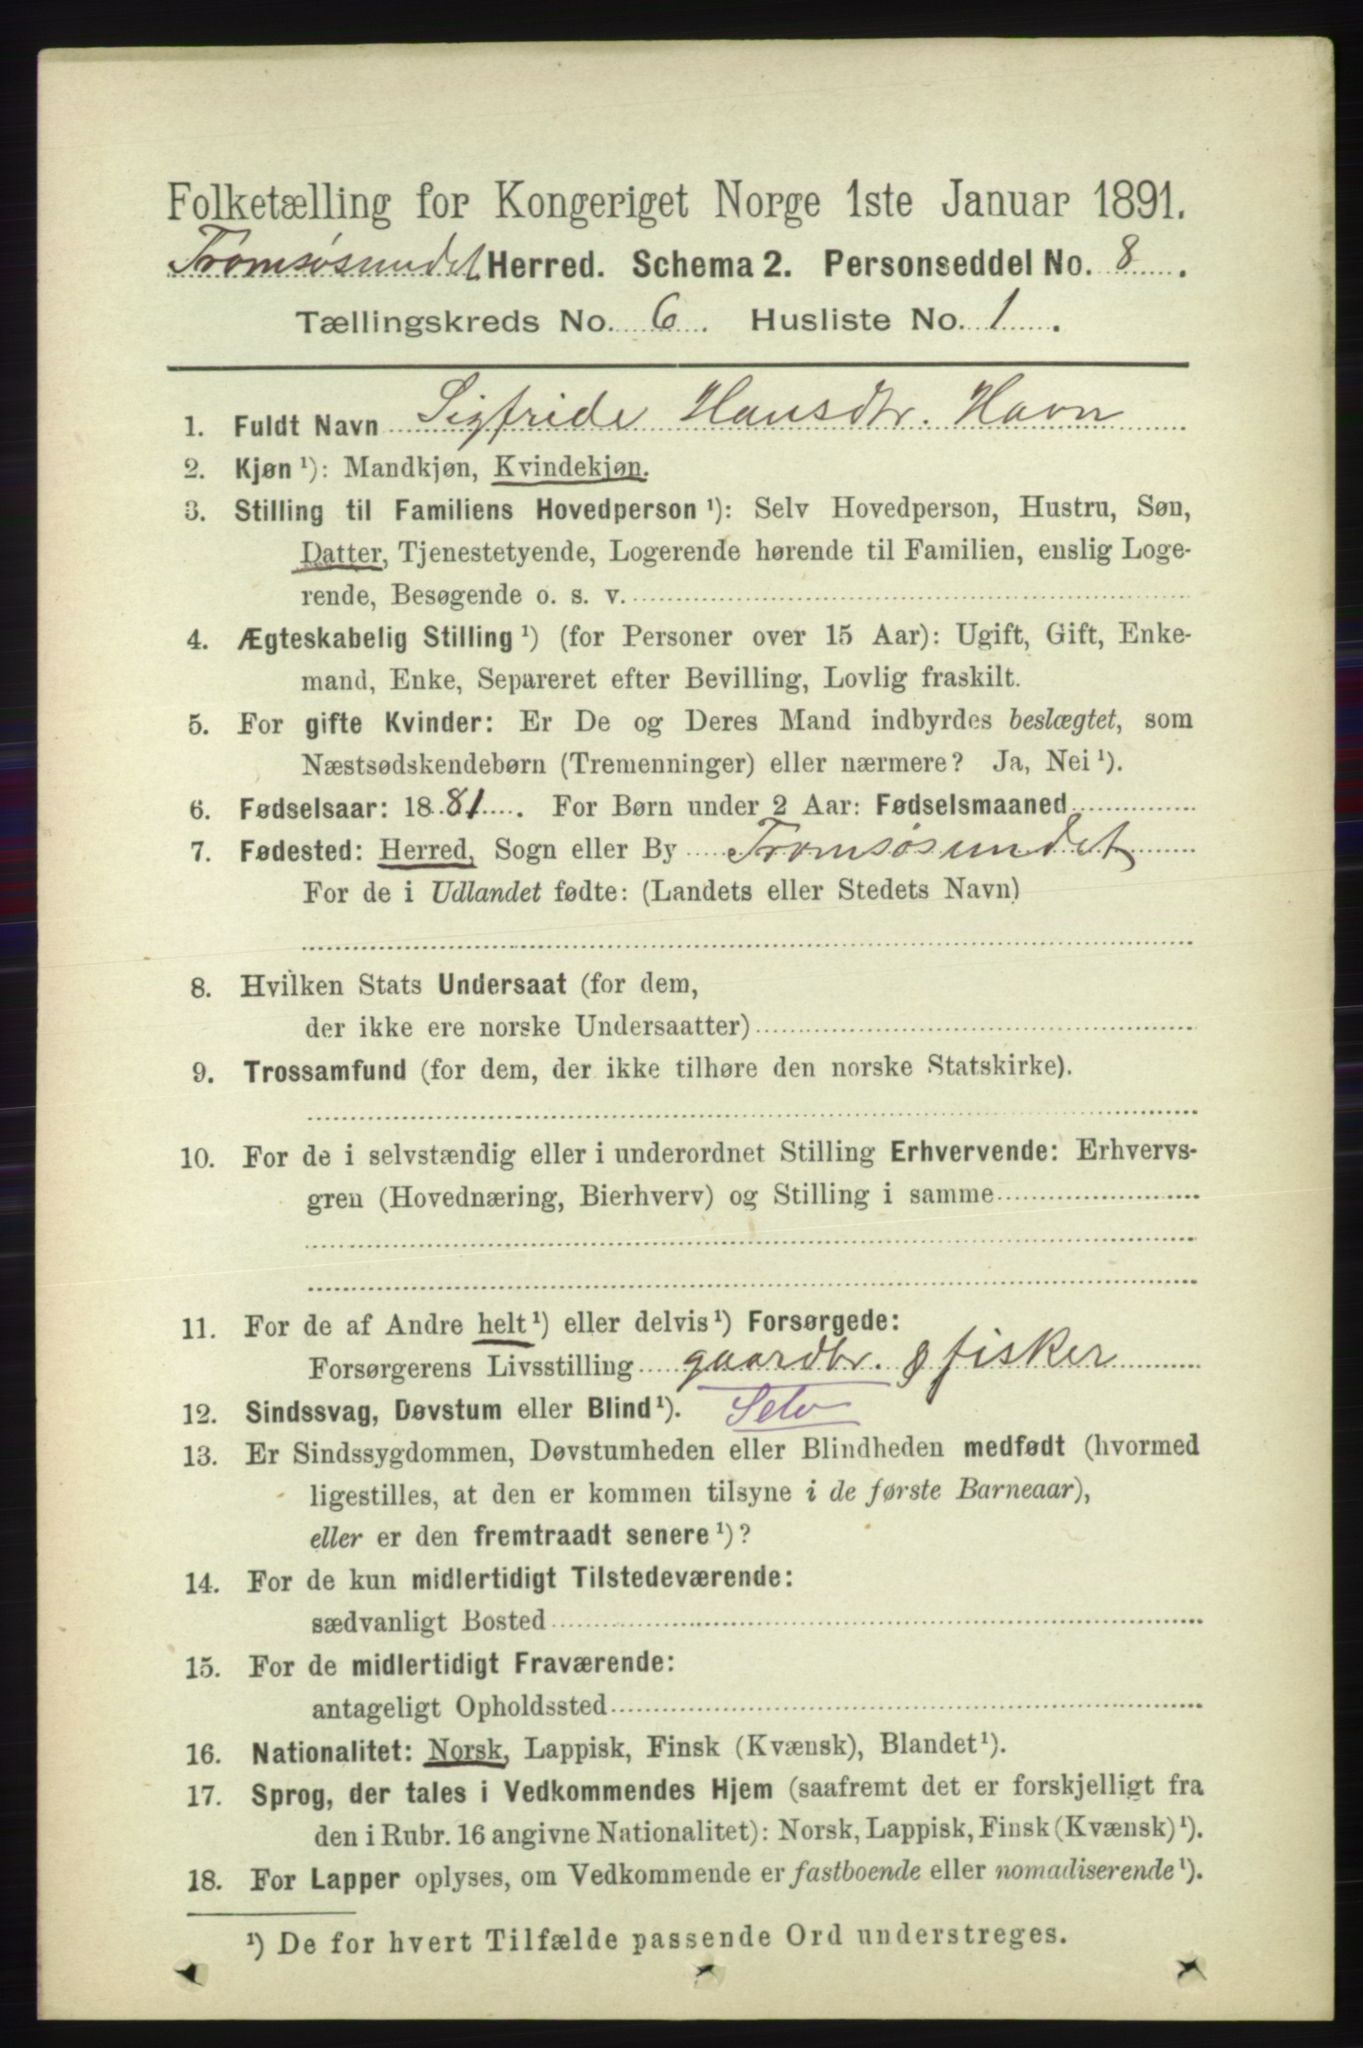 Folketælling for Kongeriget Norge 1ste Januar 1891.
Tromsøsundet Herred. Schema 2. Personseddel No. 8.
Tællingskreds No. 6. Husliste No. 1.
1. Fuldt Navn Sigfride Hansdtr. Havn
2. Kjøn ¹): Mandkjøn, Kvindekjøn.
3. Stilling til Familiens Hovedperson ¹): Selv Hovedperson, Hustru, Søn,
Datter, Tjenestetyende, Logerende hørende til Familien, enslig Loge-
rende, Besøgende o. s. v.
4. Ægteskabelig Stilling ¹) (for Personer over 15 Aar): Ugift, Gift, Enke-
mand, Enke, Separeret efter Bevilling, Lovlig fraskilt.
5. For gifte Kvinder: Er De og Deres Mand indbyrdes beslægtet, som
Næstsødskendebørn (Tremenninger) eller nærmere? Ja, Nei ¹).
6. Fødselsaar: 1881. For Børn under 2 Aar: Fødselsmaaned
7. Fødested: Herred, Sogn eller By Tromsøsundet
For de i Udlandet fødte: (Landets eller Stedets Navn)
8. Hvilken Stats Undersaat (for dem,
der ikke ere norske Undersaatter)
9. Trossamfund (for dem, der ikke tilhøre den norske Statskirke).
10. For de i selvstændig eller i underordnet Stilling Erhvervende: Erhvervs-
gren (Hovednæring, Bierhverv) og Stilling i samme
11. For de af Andre helt ¹) eller delvis ¹) Forsørgede:
Forsørgerens Livsstilling gaardbr. & fisker
12. Sindssvag, Døvstum eller Blind ¹). Selv
13. Er Sindssygdommen, Døvstumheden eller Blindheden medfødt (hvormed
ligestilles, at den er kommen tilsyne i de første Barneaar),
eller er den fremtraadt senere ¹)?
14. For de kun midlertidigt Tilstedeværende:
sædvanligt Bosted
15. For de midlertidigt Fraværende:
antageligt Opholdssted
16. Nationalitet: Norsk, Lappisk, Finsk (Kvænsk), Blandet ¹).
17. Sprog, der tales i Vedkommendes Hjem (saafremt det er forskjelligt fra
den i Rubr. 16 angivne Nationalitet): Norsk, Lappisk, Finsk (Kvænsk) ¹).
18. For Lapper oplyses, om Vedkommende er fastboende eller nomadiserende ¹).
¹) De for hvert Tilfælde passende Ord understreges.